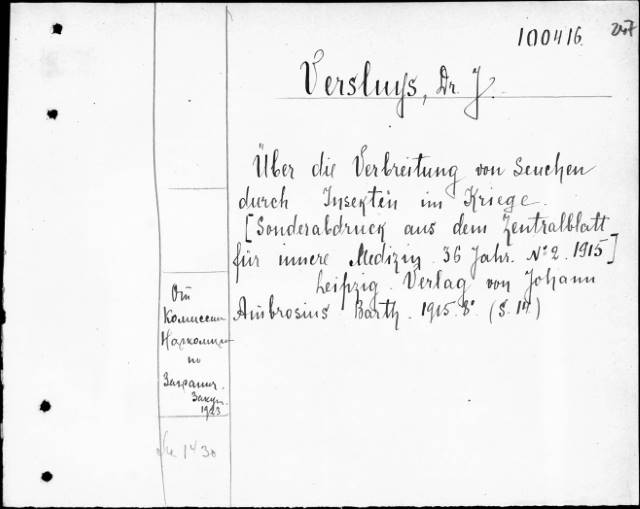 100416 247
Versluys, Dr. J.
Über die Verbreitung von Seuchen
durch Insekten im Kriege.
[Sonderabdruck aus dem Zentralblatt
für innere Medizin 36 Jahr. № 2. 1915]
Leipzig. Verlag von Johann
Ambrosius Barth. 1915. 8°. (S. 14)
От
Комиссии
по
Загранич.
Закуп.
1923
1430